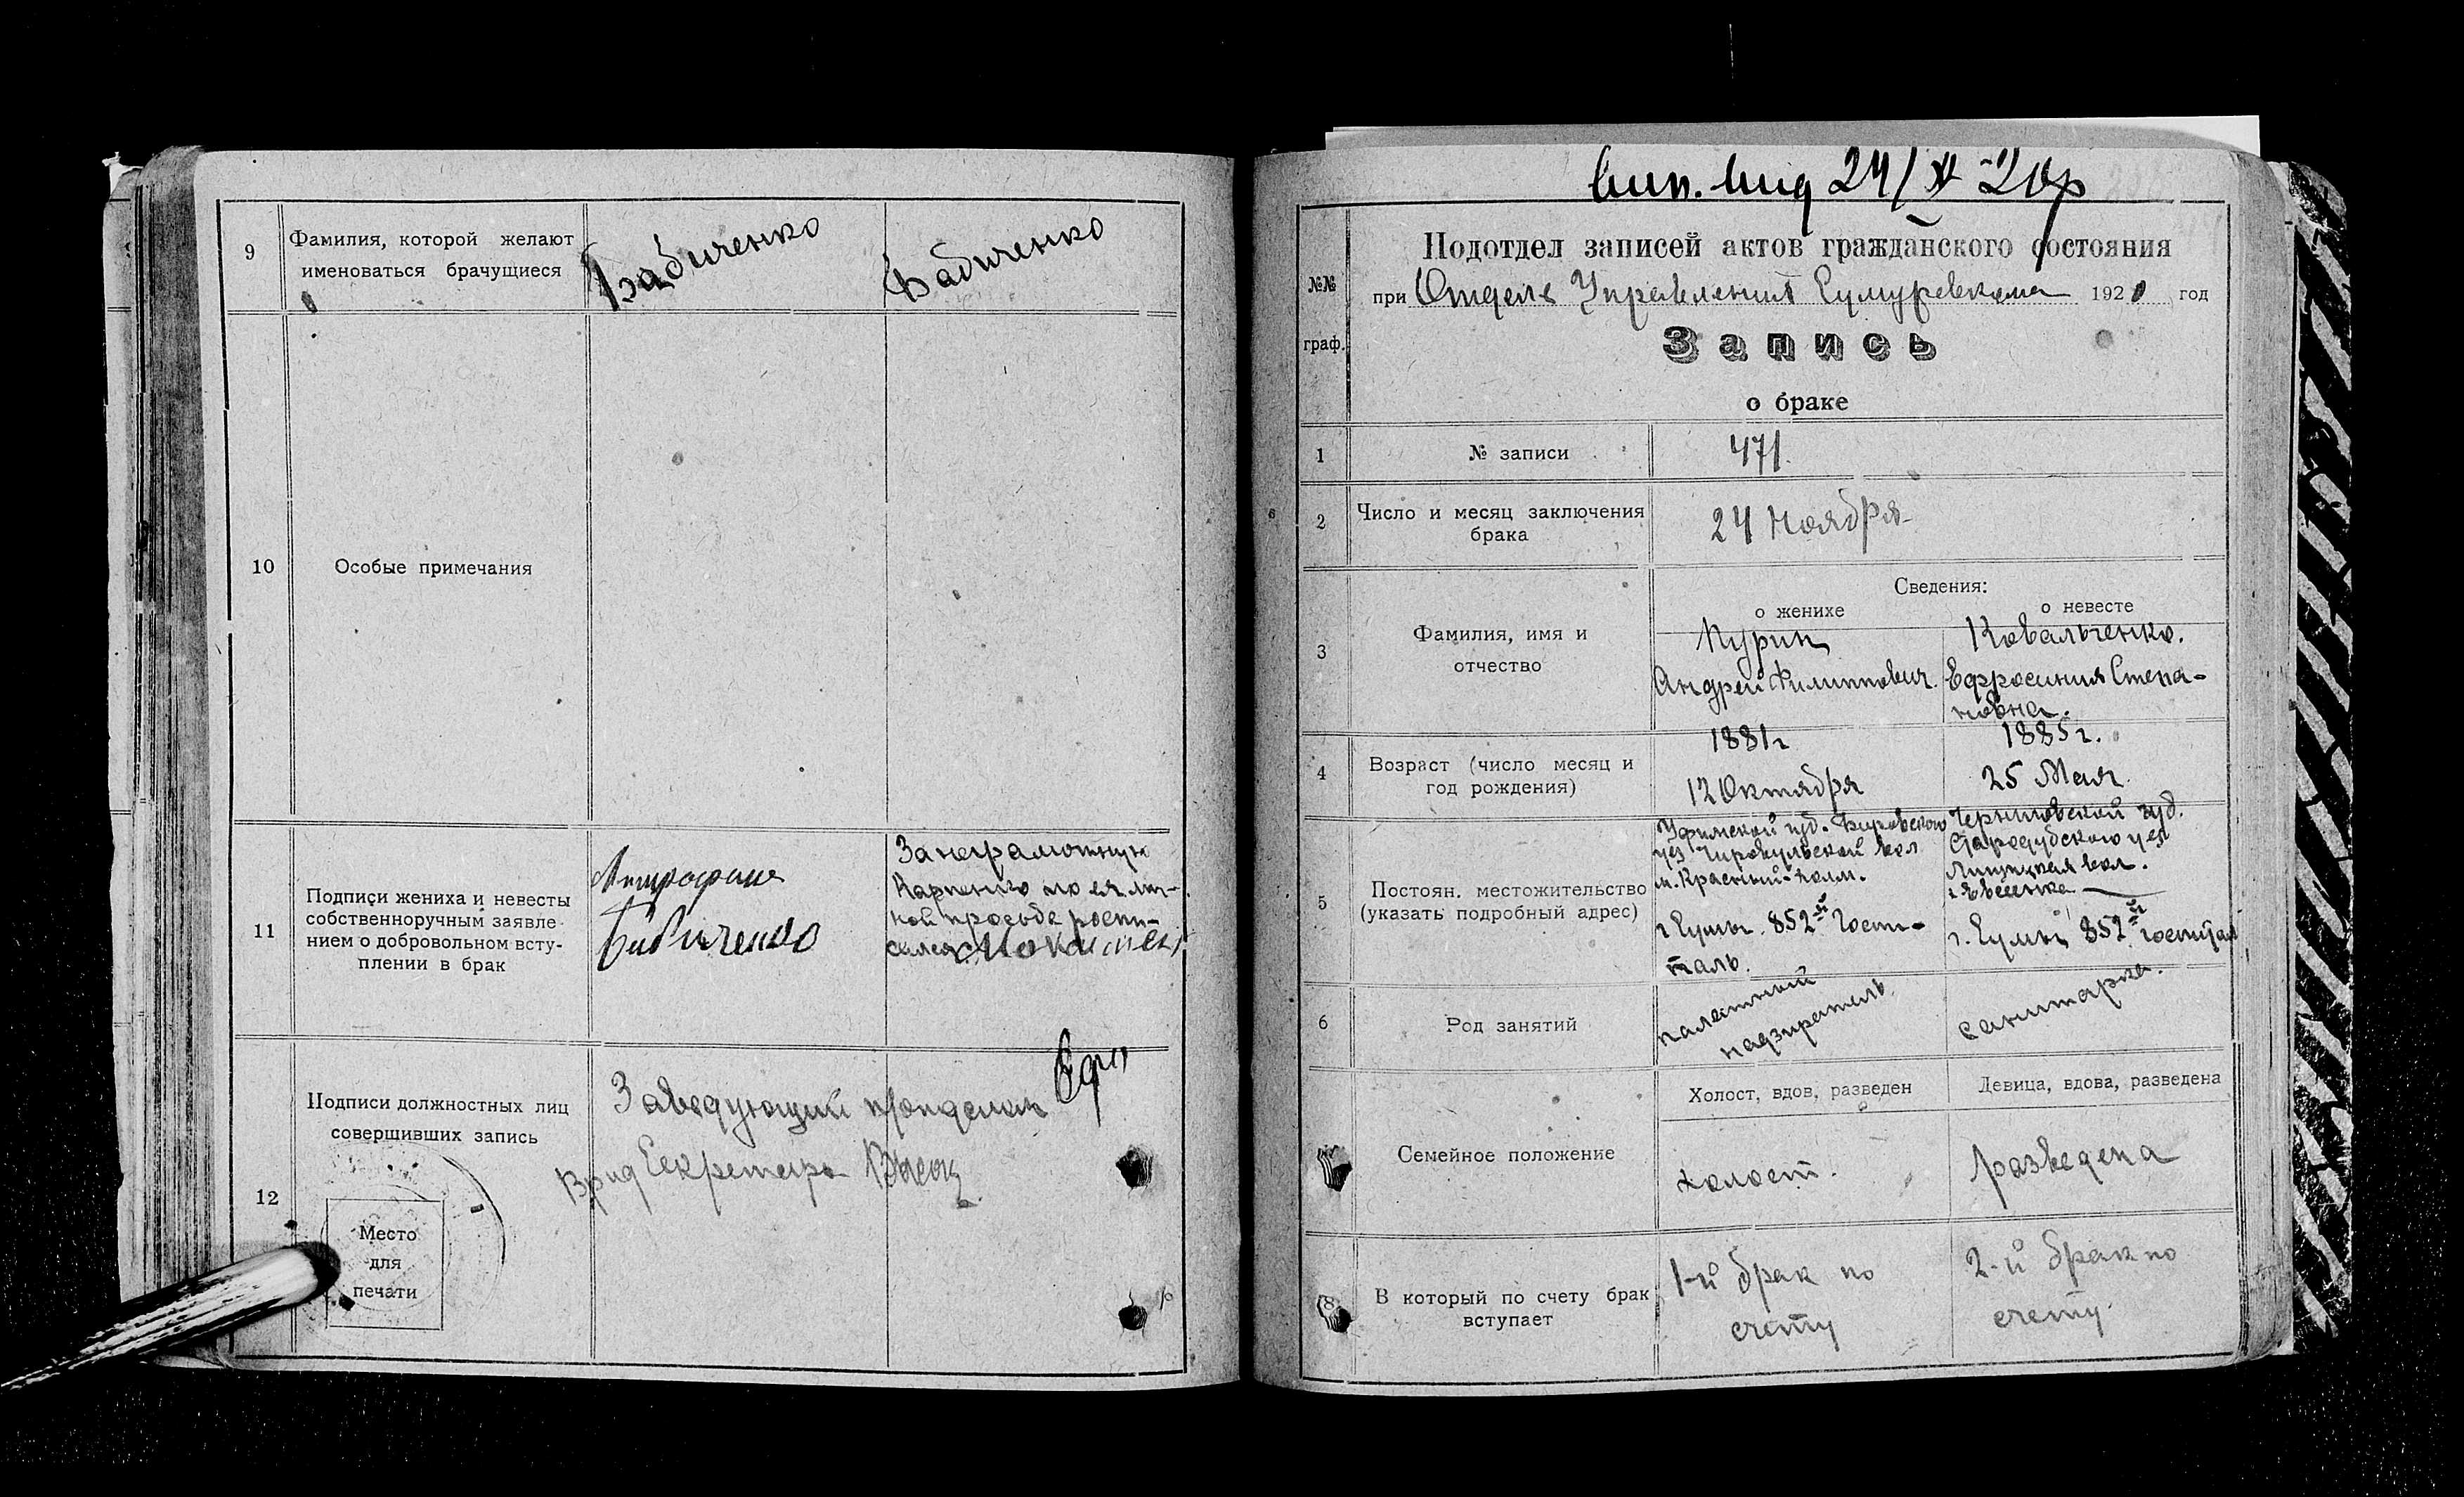 9
Фамилия, которой желают
именоваться брачущиеся
Бабиченко
Бабиченко
10
Особые примечания
11
Подписи жениха и невесты
собственноручным заявле-
нием о добровольном всту-
плении в брак
Митрофан
Бабиченко
За неграмотную
Карпенко по ея лич-
ной просьбе роспи-
сался
12
Подписи должностных лиц
совершивших запись
Заведующий
Врид Секретаря
Место
для
печати
24/XI 20р
№№
граф.
Подотдел записей актов гражданского состояния
при Отделе Управления Сумуревкома 1920 год
Запись
о браке
1
№ записи
471
2
Число и месяц заключения
брака
24 Ноября
Сведения:
о женихе
о невесте
3
Фамилия, имя и
отчество
Пурин
Андрей Филиппович.
Ковальченко.
Ефросиния Степа-
новна.
4
Возраст (число месяц и
год рождения)
1881г
12 Октября
1885г.
25 Мая
5
Постоян. местожительство
(указать подробный адрес)
Уфимской губ. Бирского
уез вол
м. Красный-холм.
г Сумы. 852й Госпи-
таль.
Черниговской губ.
Стародубского уез
вол.
г. Сумы 852й госпитал
6
Род занятий
палатный
надзиратель
санитарка.
Семейное положение
Холост, вдов, разведен
Девица, вдова, разведена
холост.
разведена
8
В который по счету брак
вступает
1-й брак по
счету
2-й брак по
счету.